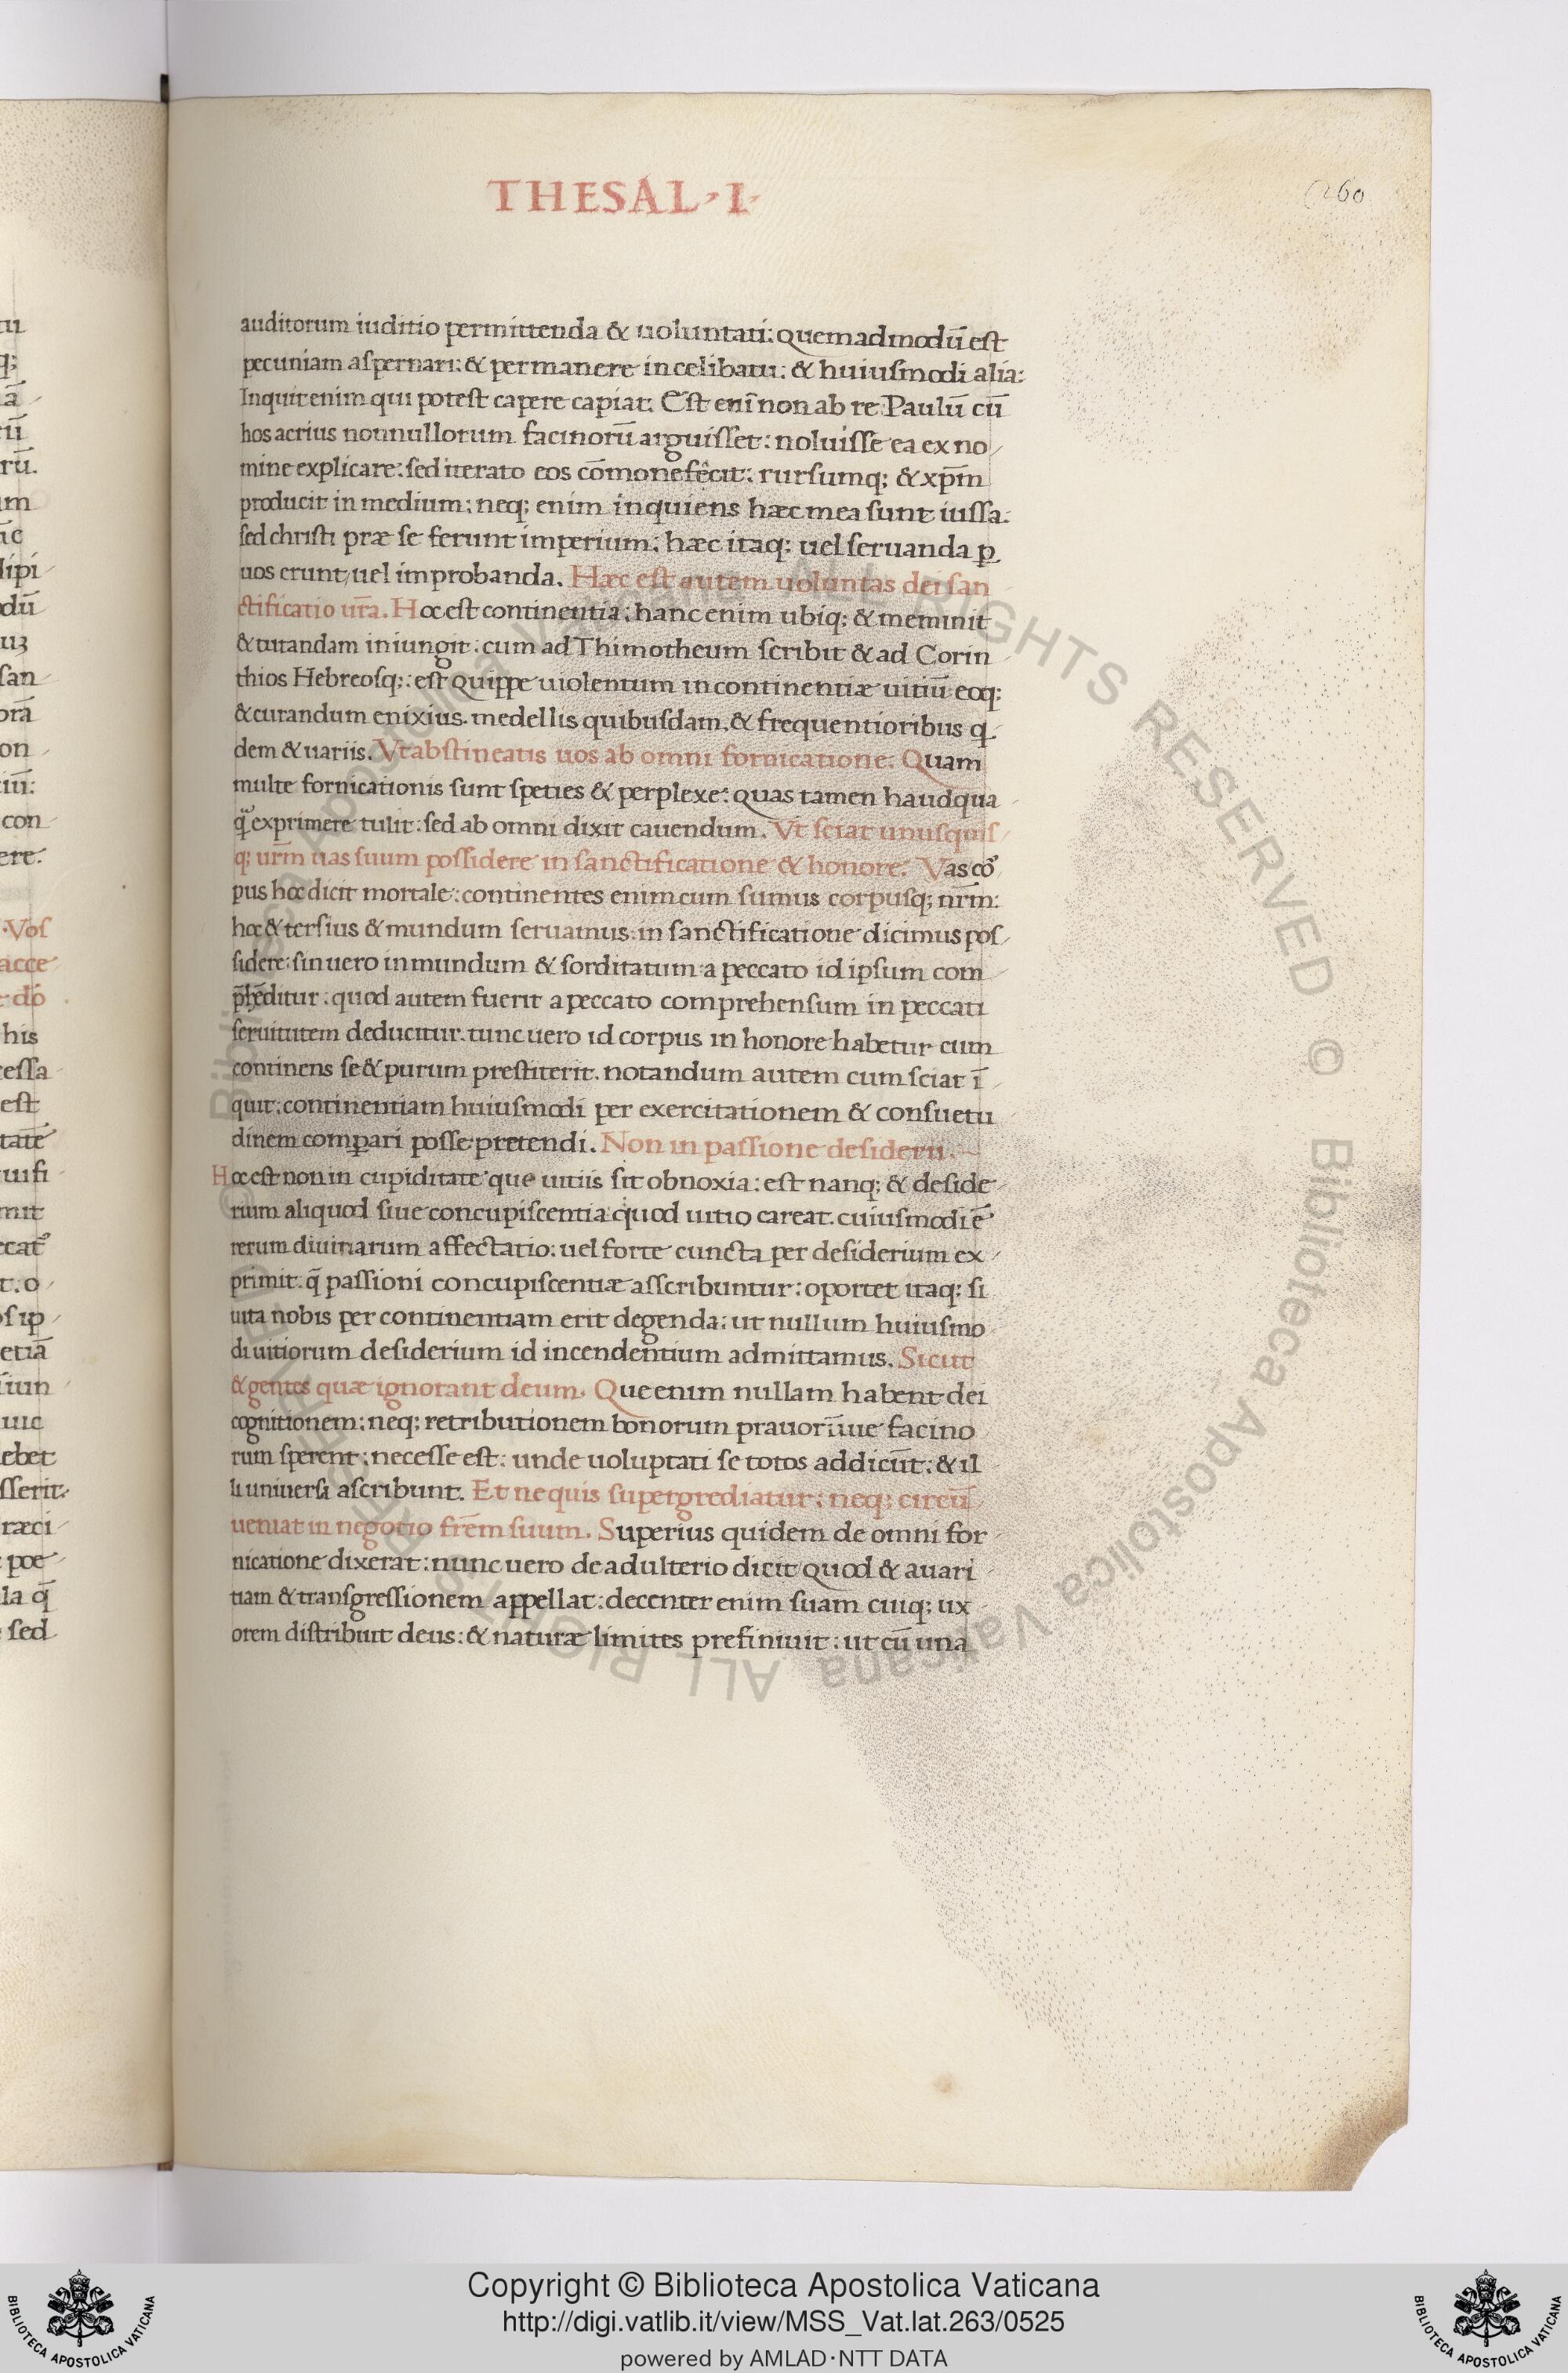 THESAL · I ·
260
auditorum iuditio permittenda & uoluntati: quemadmodū est
pecuniam aspernari: & permanere in celibatu: & huiusmodi alia:
Inquit enim qui potest capere capiat. Est eni̅ non ab re Paulū cū
hos acrius nonnullorum facinorū arguisset: noluisse ea ex no
mine explicare: sed iterato eos cōmonefecit: rursumq; & xp̄m
producit in medium: neq; enim inquiens hæc mea sunt iussa:
sed christi præ se ferunt imperium: hæc itaq; uel seruanda p̲
uos erunt, uel improbanda. Hæc est autem uoluntas dei san
ctificatio ur̄a. Hoc est continentia: hanc enim ubiq; & meminit
& tutandam iniungit: cum ad Thimotheum scribit & ad Corin
thios Hebreosq;: est quippe uiolentum incontinentiæ uitiū eoq;
& curandum enixius. medellis quibusdam, & frequentioribus q
dem & uariis. Vt abstineatis uos ab omni fornicatione. Quam
multe fornicationis sunt speties & perplexe: quas tamen haudqua
q̄ exprimere tulit: sed ab omni dixit cauendum. Vt sciat unusquis
q; ur̄m uas suum possidere in sanctificatione & honore. Vas cō
pus hoc dicit mortale: continentes enim cum sumus corpusq; nr̄m:
hoc & tersius & mundum seruamus: in sanctificatione dicimus pos
sidere: sin uero inmundum & sorditatum a peccato id ipsum com
p̄hēditur: quod autem fuerit a peccato comprehensum in peccati
seruitutem deducitur. tunc uero id corpus in honore habetur cum
continens se & purum prestiterit. notandum autem cum sciat ī
quit: continentiam huiusmodi per exercitationem & consuetu
dinem comp̲ari posse pretendi. Non in passione desiderii.
Hoc est non in cupiditate que uitiis sit obnoxia: est nanq; & deside
rium aliquod siue concupiscentia quod uitio careat. cuiusmodi ē
rerum diuinarum affectatio: uel forte cuncta per desiderium ex
primit. q̄ passioni concupiscentiæ asscribuntur: oportet itaq; si
uita nobis per continentiam erit degenda: ut nullum huiusmo
di uitiorum desiderium id incendentium admittamus. Sicut
& gentes quæ ignorant deum. Que enim nullam habent dei
cognitionem: neq; retributionem bonorum prauorūue facino
rum sperent: necesse est: unde uoluptati se totos addicūt: & il
li uniuersi ascribunt. Et ne quis supergrediatur: neq; circū
ueniat in negotio frēm suum. Superius quidem de omni for
nicatione dixerat: nunc uero de adulterio dicit quod & auari
tiam & transgressionem appellat: decenter enim suam cuiq; ux
orem distribuit deus: & naturæ limites prefiniuit: ut cū una
tu
q;
ā
rū.
um
dū
san
orā
on
con
ere.
Vos
acce
dō
his
cessa
est
tate
mit
t. o
etiā
iiun
uic
ebet
sserit.
ræci
poe
la q̄
sed
© Biblioteca Apostolica Vaticana ALL RIGHTS RESERVED © Biblioteca Apostolica Vaticana ALL RIGHTS RESERVED
BIBLIOTECA APOSTOLICA VATICANA
Copyright © Biblioteca Apostolica Vaticana
http://digi.vatlib.it/view/MSS_Vat.lat.263/0525
powered by AMLAD·NTT DATA
BIBLIOTECA APOSTOLICA VATICANA